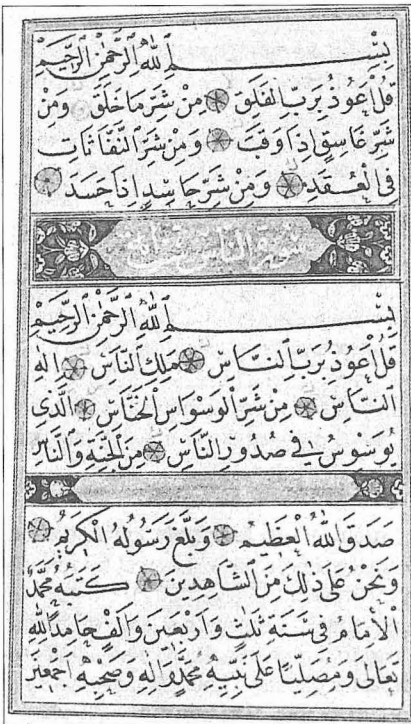 بِسْمِ ٱللهِ ٱلرَّحْمٰنِ ٱلرَّحِيمِ
قُلْ أَعُوذُ بِرَبِّ ٱلْفَلَقِ مِنْ شَرِّ مَا خَلَقَ وَمِنْ
شَرِّ غَاسِقٍ إِذَا وَقَبَ وَمِنْ شَرِّ ٱلنَّفَّاثَاتِ
فِى ٱلْعُقَدِ وَمِنْ شَرِّ حَاسِدٍ إِذَا حَسَدَ
سورة الناس
بِسْمِ ٱللهِ ٱلرَّحْمٰنِ ٱلرَّحِيمِ
قُلْ أَعُوذُ بِرَبِّ ٱلنَّاسِ مَلِكِ ٱلنَّاسِ إِلٰهِ
ٱلنَّاسِ مِنْ شَرِّ ٱلْوَسْوَاسِ ٱلْخَنَّاسِ ٱلَّذِى
يُوَسْوِسُ فِى صُدُورِ ٱلنَّاسِ مِنَ ٱلْجِنَّةِ وَٱلنَّاسِ
صَدَقَ ٱللهُ ٱلْعَظِيمُ وَبَلَّغَ رَسُولُهُ ٱلْكَرِيمُ
وَنَحْنُ عَلَى ذٰلِكَ مِنَ ٱلشَّاهِدِينَ كَتَبَهُ مُحَمَّدٌ
ٱلْإِمَامُ فِى سَنَةِ ثَلٰثٍ وَأَرْبَعِينَ وَأَلْفٍ حَامِدًا لِلّٰهِ
تَعَالَى وَمُصَلِّيًا عَلَى نَبِيِّهِ مُحَمَّدٍ وَآلِهِ وَصَحْبِهِ أَجْمَعِينَ